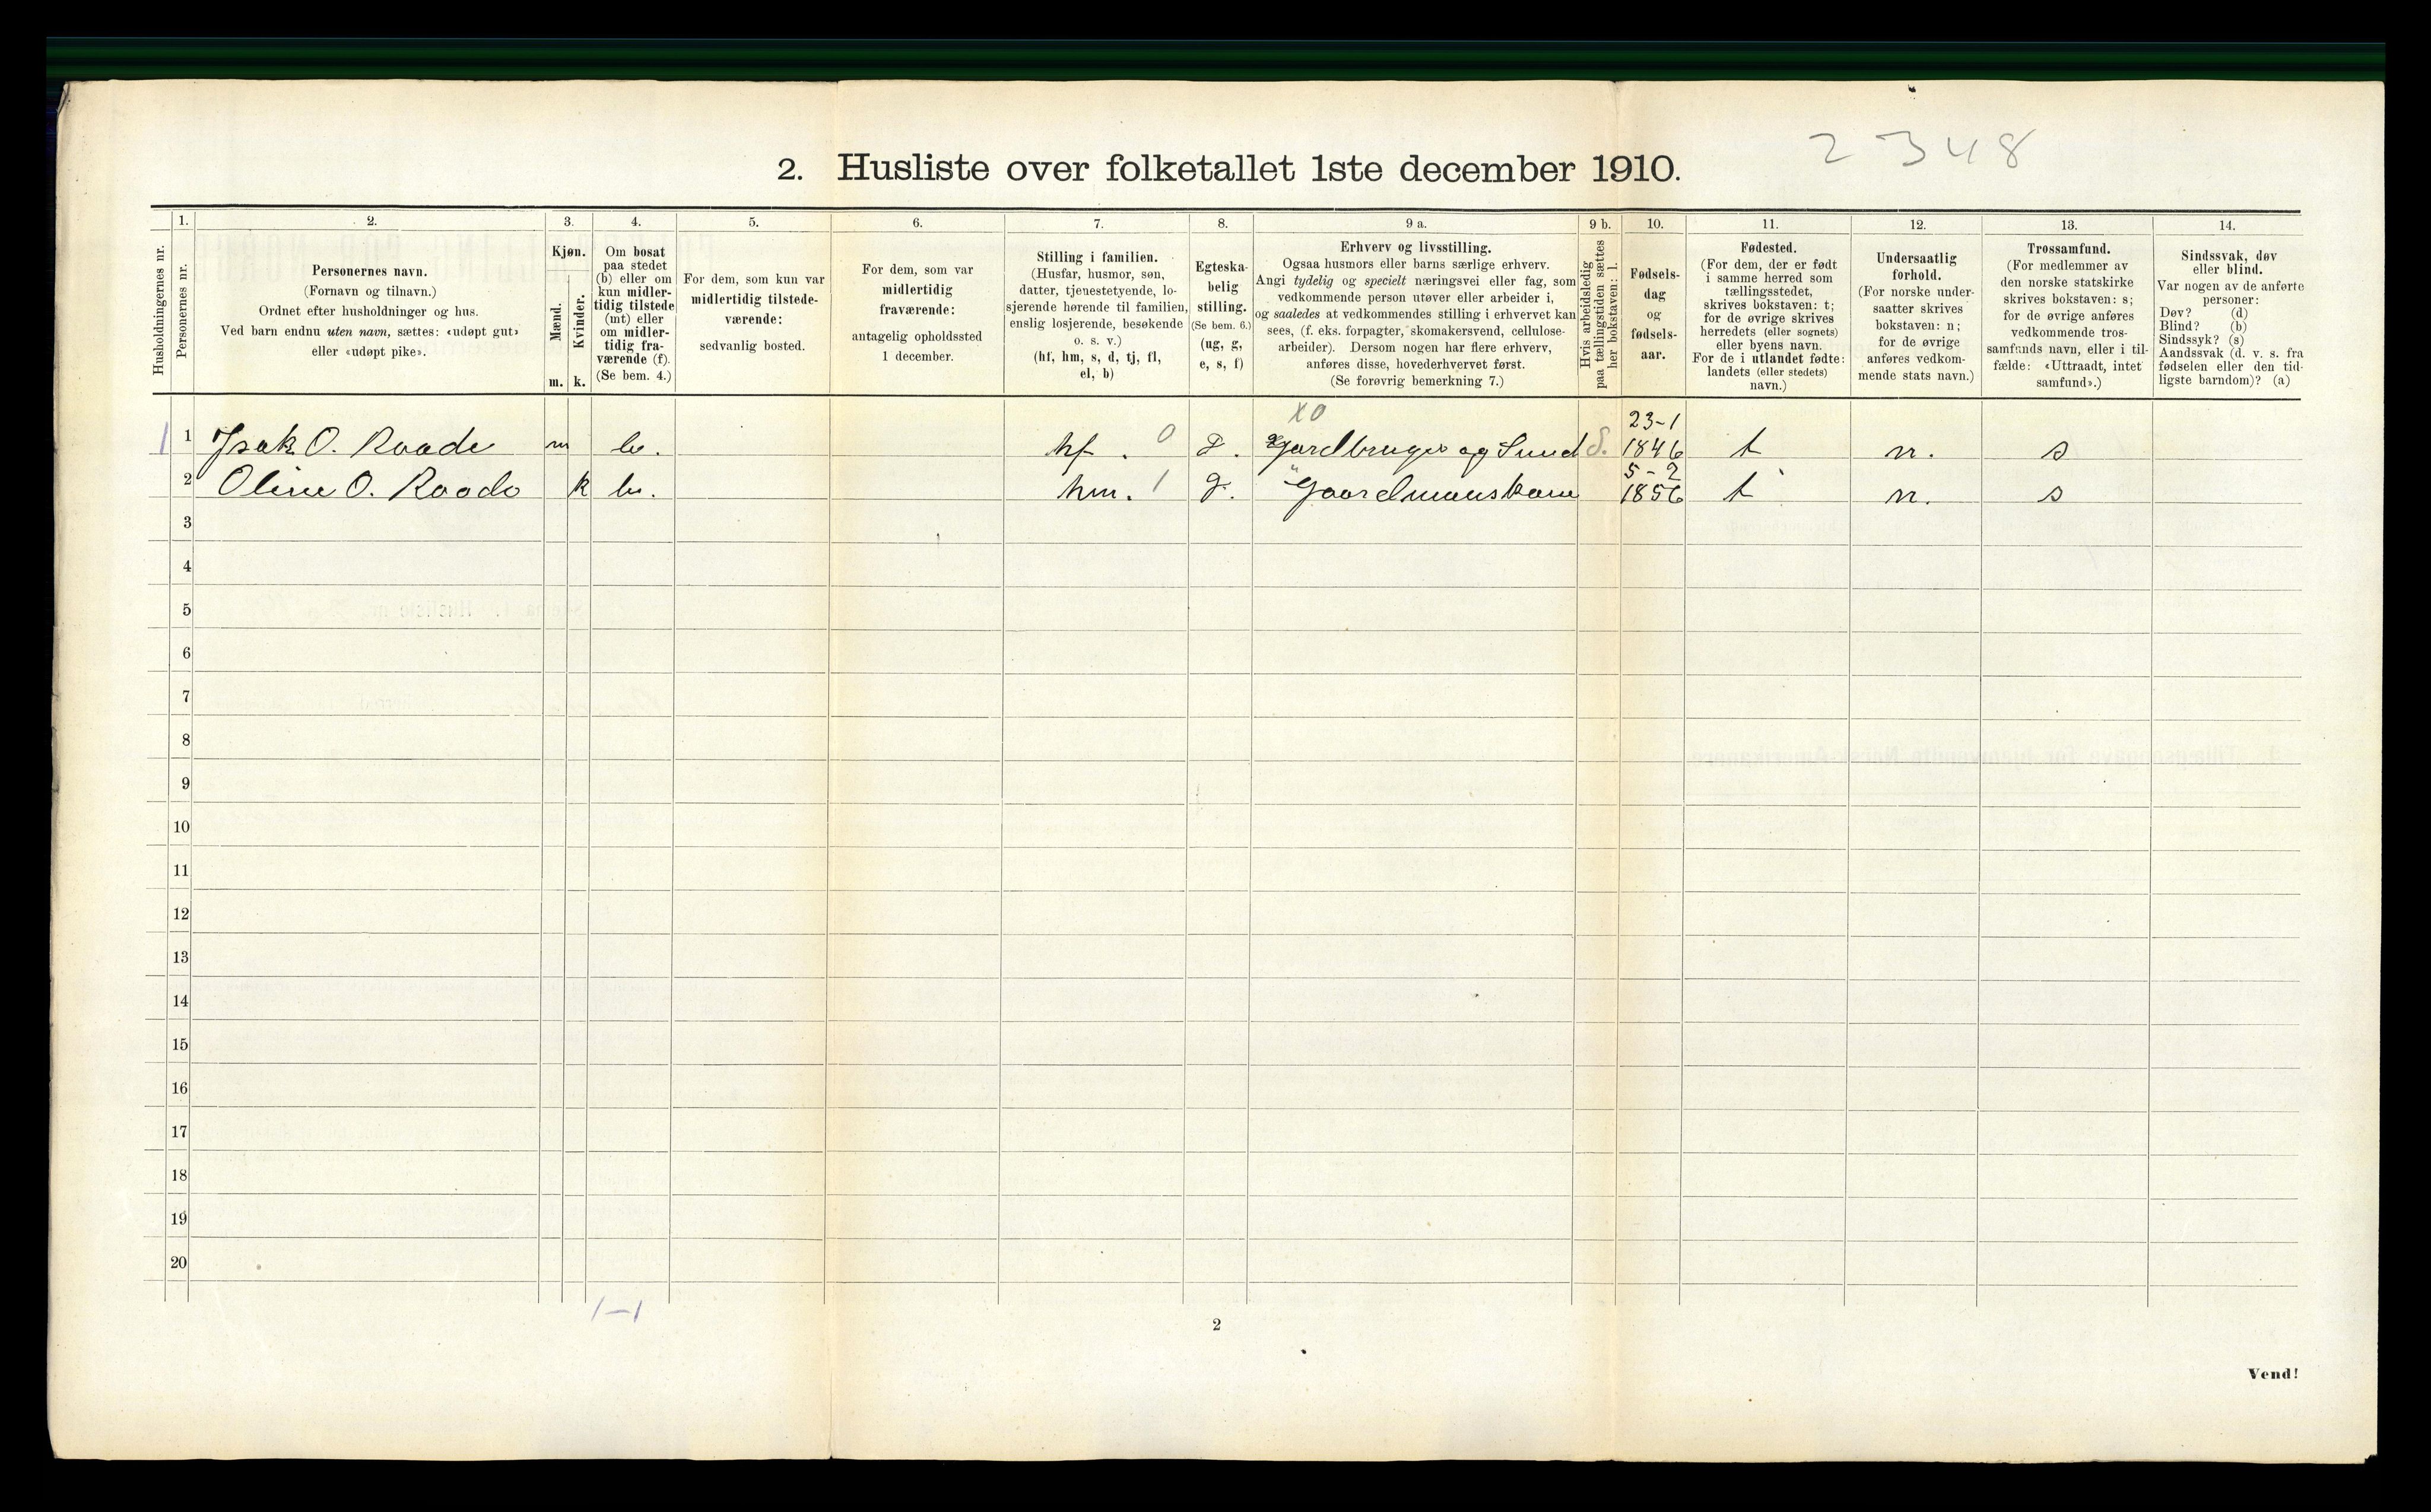 2348
2. Husliste over folketallet 1ste december 1910.
Husholdningernes nr.
1.
Personernes nr.
2.
Personernes navn.
(Fornavn og tilnavn.)
Ordnet efter husholdninger og hus.
Ved barn endnu uten navn, sættes: «udøpt gut»
eller «udøpt pike».
3.
Kjøn.
Mænd.
Kvinder.
m. k.
4.
Om bosat
paa stedet
(b) eller om
kun midler-
tidig tilstede
(mt) eller
om midler-
tidig fra-
værende (f).
(Se bem. 4.)
5.
For dem, som kun var
midlertidig tilstede-
værende:
sedvanlig bosted.
6.
For dem, som var
midlertidig
fraværende:
antagelig opholdssted
1 december.
7.
Stilling i familien.
(Husfar, husmor, søn,
datter, tjenestetyende, lo-
sjerende hørende til familien,
enslig losjerende, besøkende
o. s. v.)
(hf, hm, s, d, tj, fl,
el, b)
8.
Egteska-
belig
stilling.
(Se bem. 6.)
(ug, g,
e, s, f)
9 a.
Erhverv og livsstilling.
Ogsaa husmors eller barns særlige erhverv.
Angi tydelig og specielt næringsvei eller fag, som
vedkommende person utøver eller arbeider i,
og saaledes at vedkommendes stilling i erhvervet kan
sees, (f. eks. forpagter, skomakersvend, cellulose-
arbeider). Dersom nogen har flere erhverv,
anføres disse, hovederhvervet først.
(Se forøvrig bemerkning 7.)
9 b.
Hvis arbeidsledig
paa tællingstiden sættes
her bokstaven: l.
10.
Fødsels-
dag
og
fødsels-
aar.
11.
Fødested.
(For dem, der er født
i samme herred som
tællingsstedet,
skrives bokstaven: t;
for de øvrige skrives
herredets (eller sognets)
eller byens navn.
For de i utlandet fødte:
landets (eller stedets)
navn.)
12.
Undersaatlig
forhold.
(For norske under-
saatter skrives
bokstaven: n;
for de øvrige
anføres vedkom-
mende stats navn.)
13.
Trossamfund.
(For medlemmer av
den norske statskirke
skrives bokstaven: s;
for de øvrige anføres
vedkommende tros-
samfunds navn, eller i til-
fælde: «Uttraadt, intet
samfund».)
14.
Sindssvak, døv
eller blind.
Var nogen av de anførte
personer:
Døv? (d)
Blind? (b)
Sindssyk? (s)
Aandssvak (d. v. s. fra
fødselen eller den tid-
ligste barndom)? (a)
X0 23-1
1 1 Isak O. Raade m b. hf. 0 g. Gardbruger og S. 1846 t n. s
5-2
2 Oline O. Raade k b. hm. 1 g. Gaardmanskone 1856 t n. s
3
4
5
6
7
8
9
10
11
12
13
14
15
16
17
18
19
20
1-1
2
Vend!